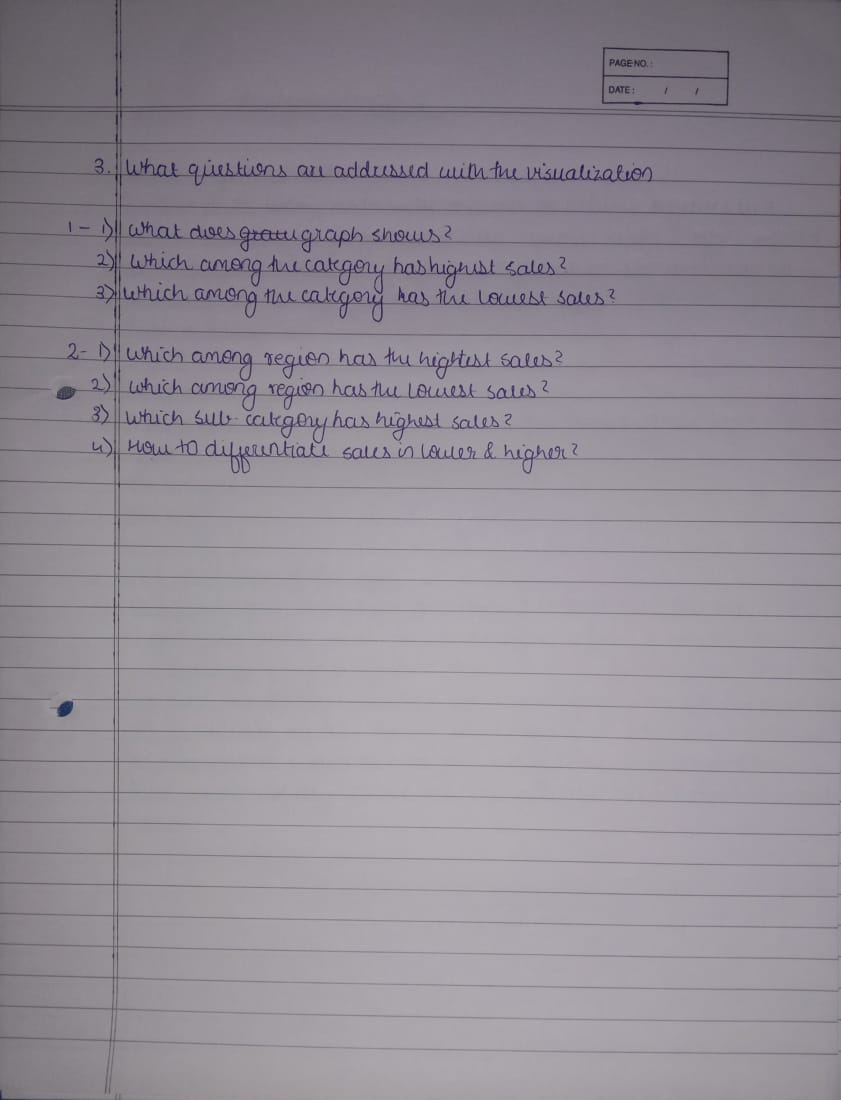 PAGE NO. :
DATE : / /
3. What questions are addressed with the visualization
1- 1) What does graph shows?
2) Which among the category has highest sales?
3) Which among the category has the lowest sales?
2- 1) Which among region has the highest sales?
2) Which among region has the lowest sales?
3) Which sub-category has highest sales?
4) How to differentiate sales in lower & higher?